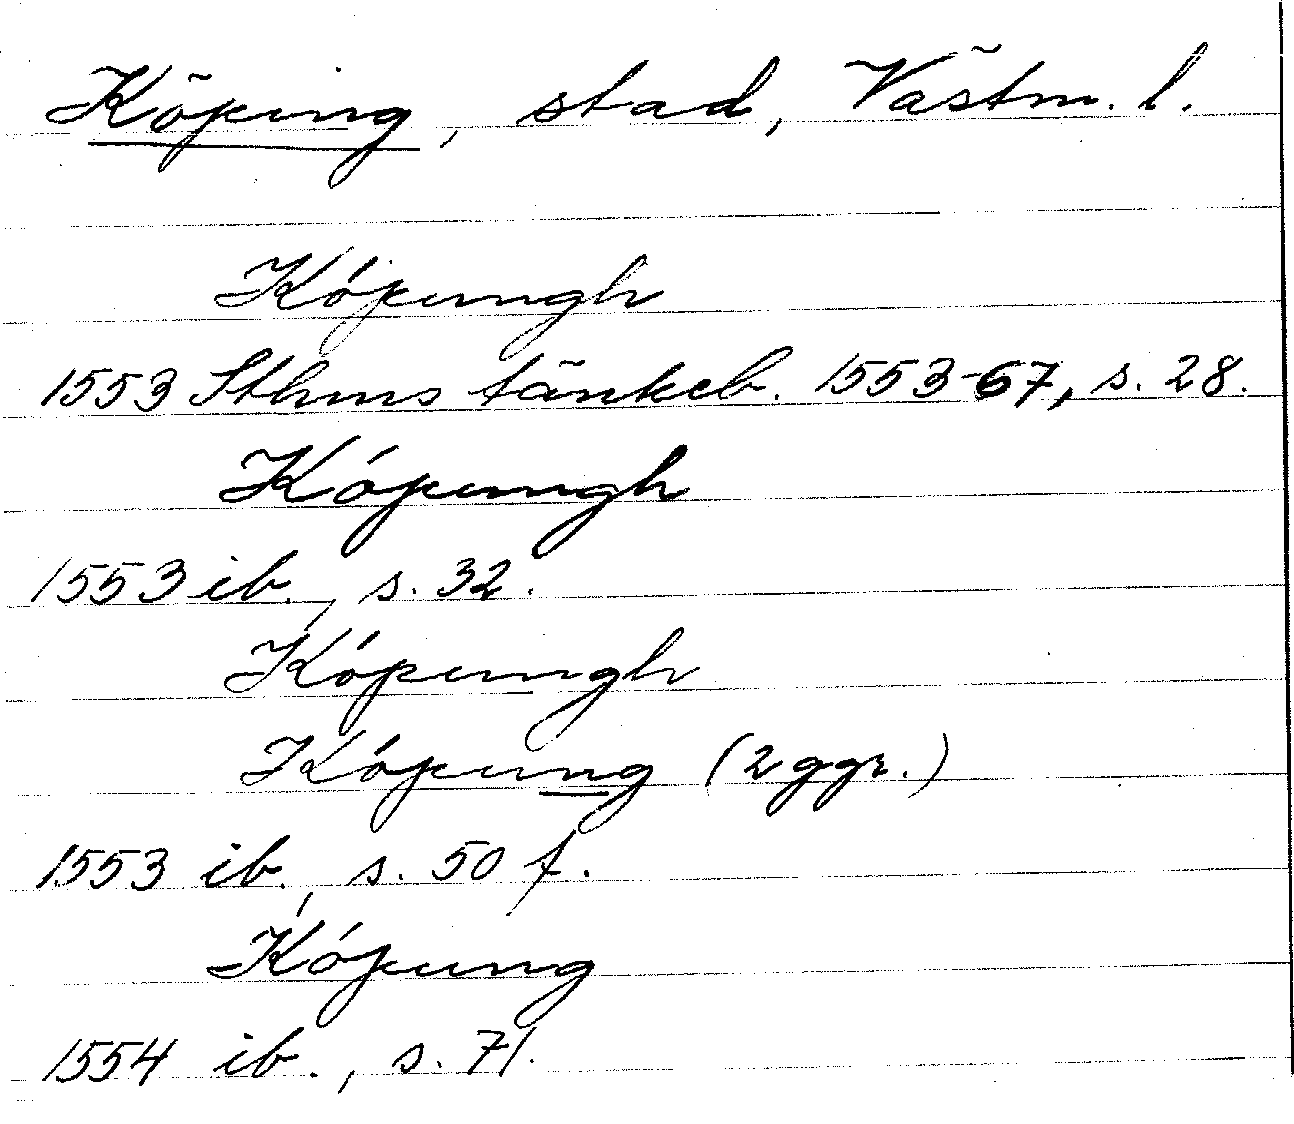 Köping, stad, Västm. l.
Kópungh
1553 Sthms tänkeb. 1553-67, s. 28.
Kópungh
1553 ib., s. 32.
Kópungh
Kópung (2 ggr.)
1553 ib., s. 50 f.
Kópung
1554 ib., s. 71.